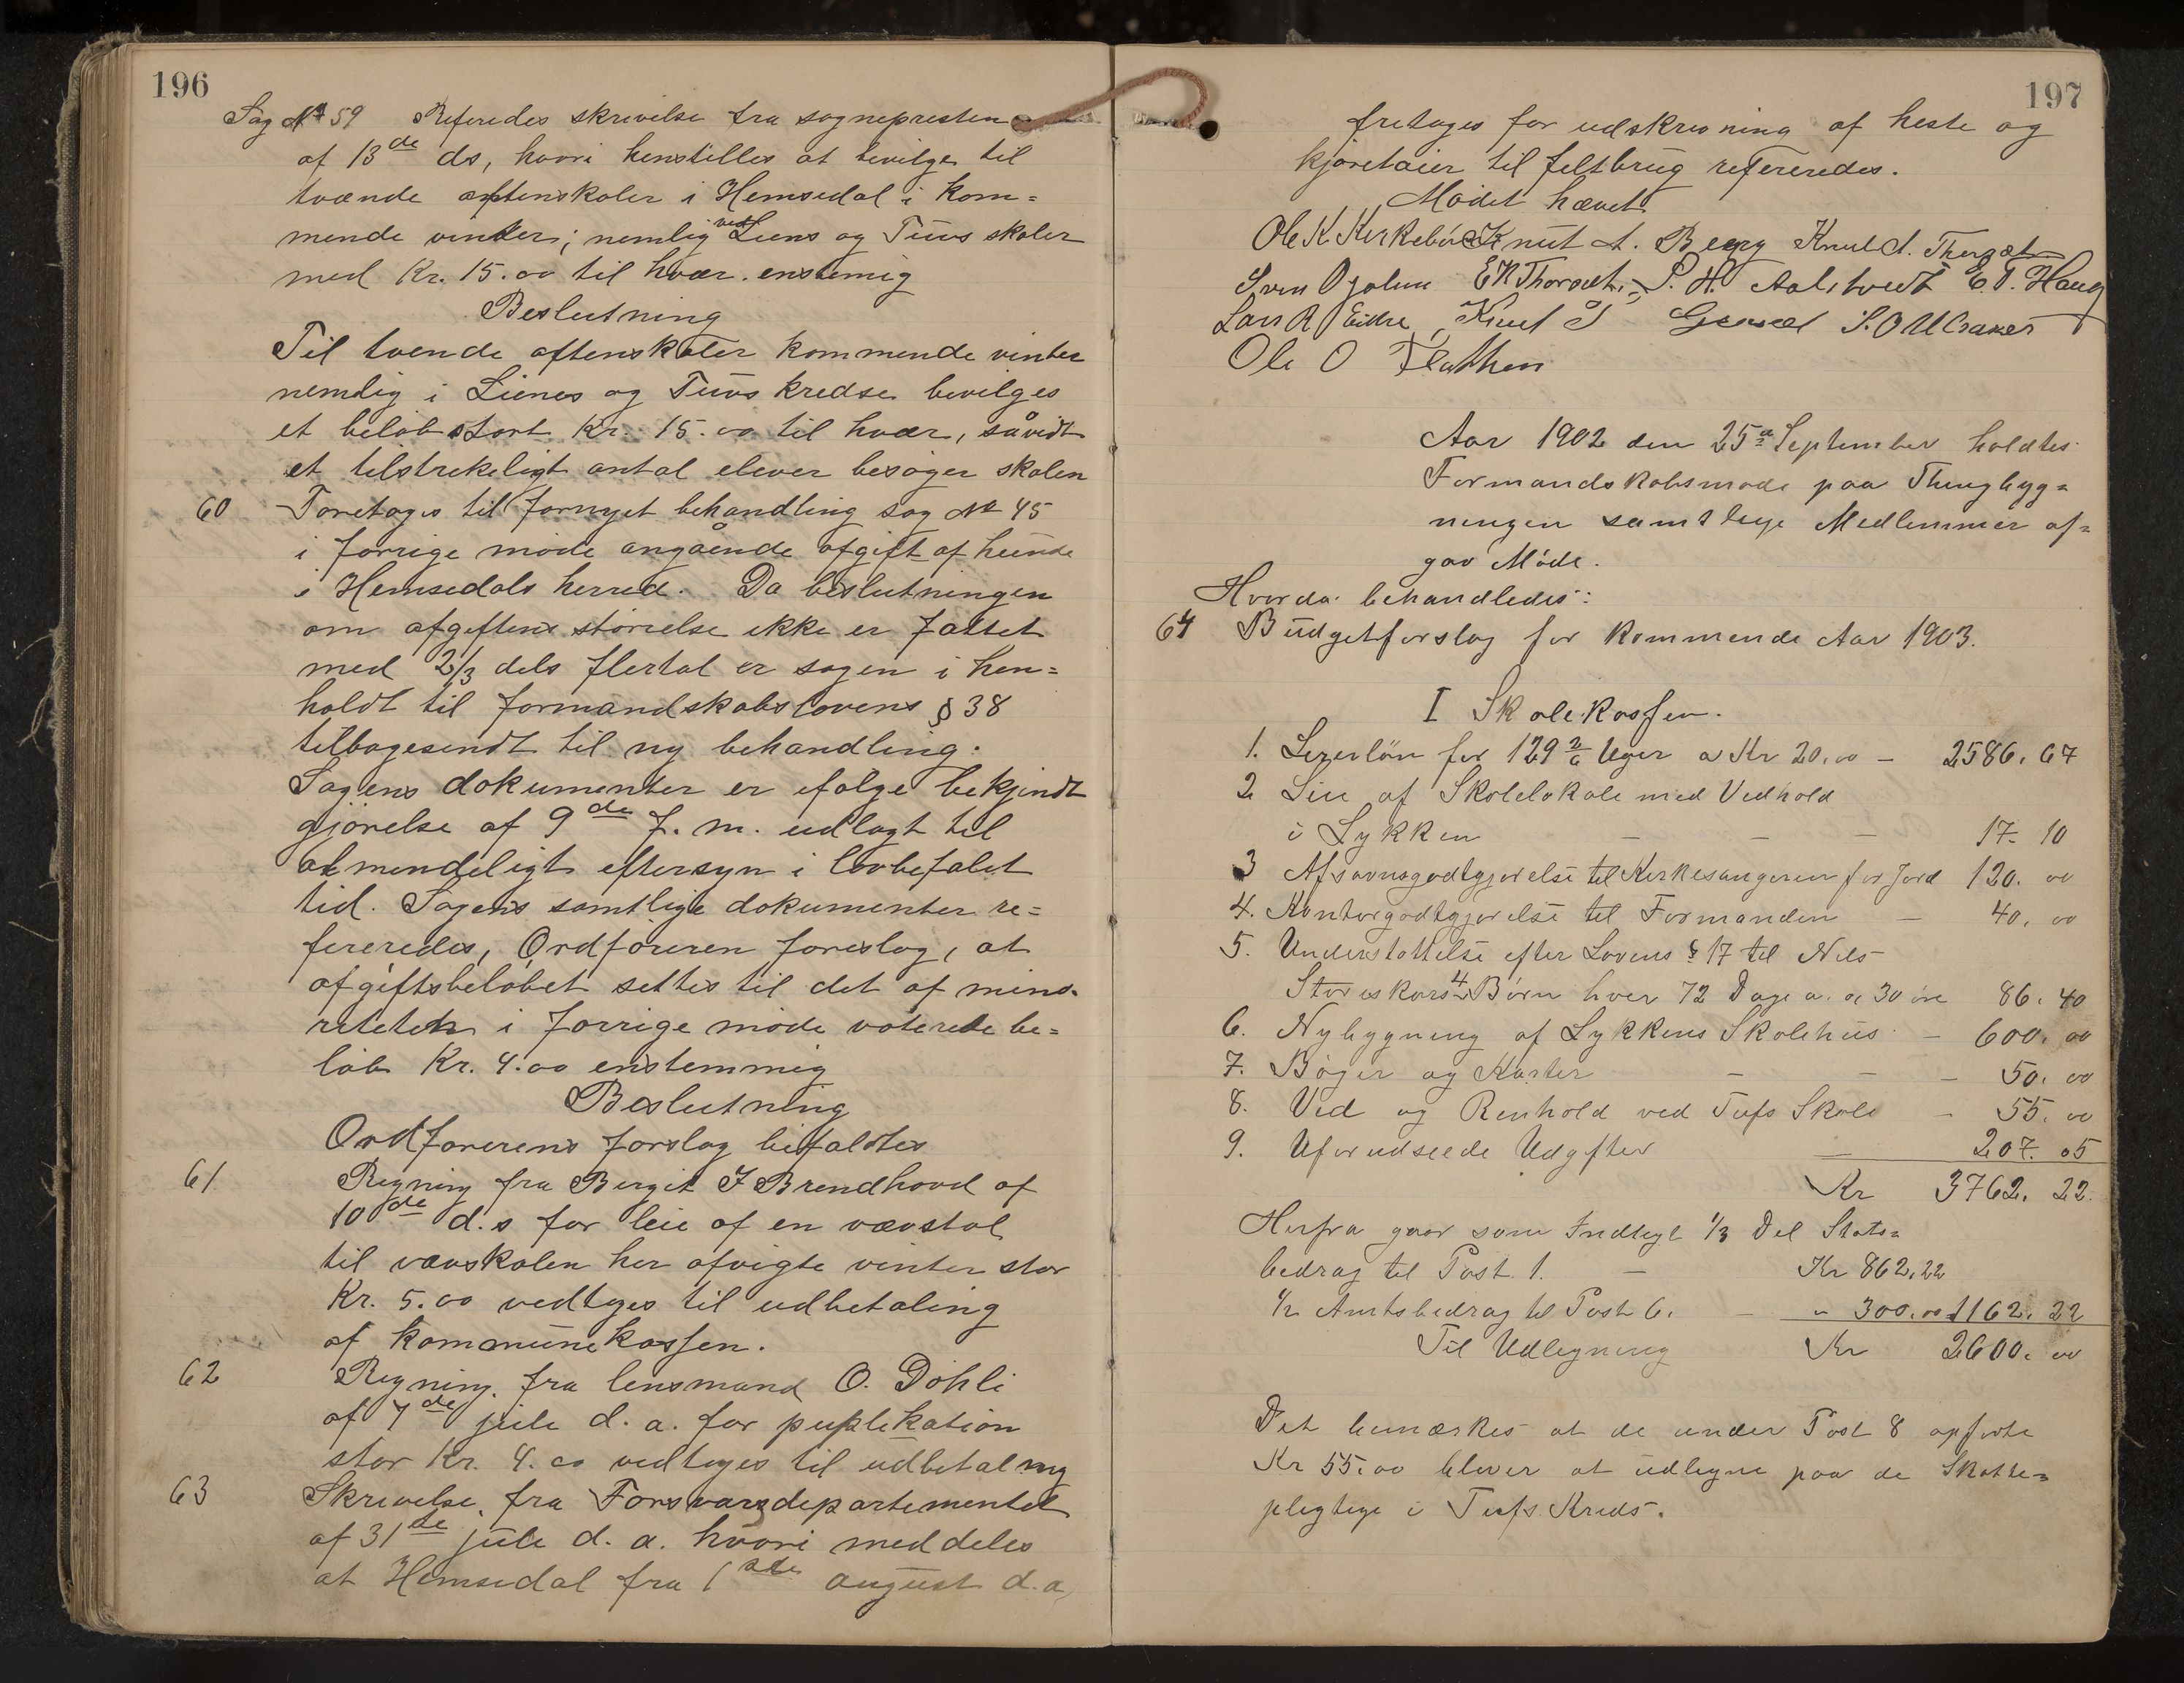 196
Sag № 59 Referedes skrivelse fra sognepresten
af 13de ds, hvori henstilles at bevilge til
tvænde aftenskoler i Hemsedal i kom=
mende vinter; nemlig ved Liens og Tuvs skoler
med Kr. 15.00 til hvær. enstemig
Beslutning
Til tvende aftenskoler kommende vinter
nemlig i Lienes og Tuvs kredse bevilges
et beløb stort Kr. 15.00 til hvær, såvidt
et tilstrekeligt antal elever besøger skolen
60 Foretoges til fornyet behandling sag № 45
i forrige møde angående afgift af hunde
i Hemsedals herred. Da beslutningen
om afgiftens størrelse ikke er fattet
med 2/3 dels flertal er sagen i hen=
holdt til formandskabslovens § 38
tilbagesendt til ny behandling.
Sagens dokumenter er ifølge bekjendt
gjørelse af 9de f. m. udlagt til
almendeligt eftersyn i lovbefalet
tid. Sagens samtlige dokumenter re=
fereredes, Ordføreren foreslog, at
afgiftsbeløbet settes til det af mino=
riteten i forrige møde voterede be=
løb Kr. 4.00 enstemmig
Beslutning
Ordførerens forslag bifaldtes
61 Regning fra Birgit T Brendhovd af
10de d.s for leie af en vævstol
til vævskolen her afvigte vinter stor
Kr. 5.00 vedtoges til udbetaling
af kommunekassen.
62 Regning fra lensmand O. Døhli
af 7de juli d. a. for puplikation
stor Kr. 4.00 vedtoges til udbetaling
63 Skrivelse fra Forsvarsdepartementet
af 31de juli d. a. hvori meddeles
at Hemsedal fra 1ste august d.a
197
fretages for udskrivning af heste og
kjøretøier til feltbrug refereredes.
Mødet hævet
Ole K. Kirkebøe Knut A. Berg Knut A.
Sven O E K Thorset. P. H. Aalstvedt E. T. Haug
Lars R Eikre, Knut T S. O Ulsaker
Ole O Flathen
Aar 1902 den 25de September holdtes
Formandskabsmøde paa Thingbyg=
ningen samtlige Medlemmer af=
gav Møde.
Hvorda behandledes:
64 Budgetforslag for kommende Aar 1903.
I Skolekassen.
1. Lærerløn for 129 2/6 Uger a Kr 20.00 – 2586. 67
2 Leie af Skolelokale med Vedhold
i Lykken – – – 17. 10
3 Afsavnsgodtgjørelse til Kirkesangeren for Jord 120. 00
4. Kontorgodtgjørelse til Formanden – 40. 00
5. Understøttelse efter Lovens § 17 til Nils
4 Børn hver 72 Dage a 30 øre 86. 40
6. Nybygning af Lykkens Skolehus – 600. 00
7. Bøger og Karter – – – 50. 00
8. Ved og Renhold ved Tufs Skole – 55. 00
9. Uforudseede Udgifter – 207. 05
Kr 3762. 22.
Herfra gaar som Indtegt 1/3 Del Stats=
bedrag til Post 1. – Kr 862.22
1/2 Amtsbedrag til Post 6. – " 300.00 1162. 22
Til Udligning Kr 2600. 00
Det bemærkes at de under Post 8 opførte
Kr 55.00 bliver at udligne paa de Skatte=
pligtige i Tufs Kreds.